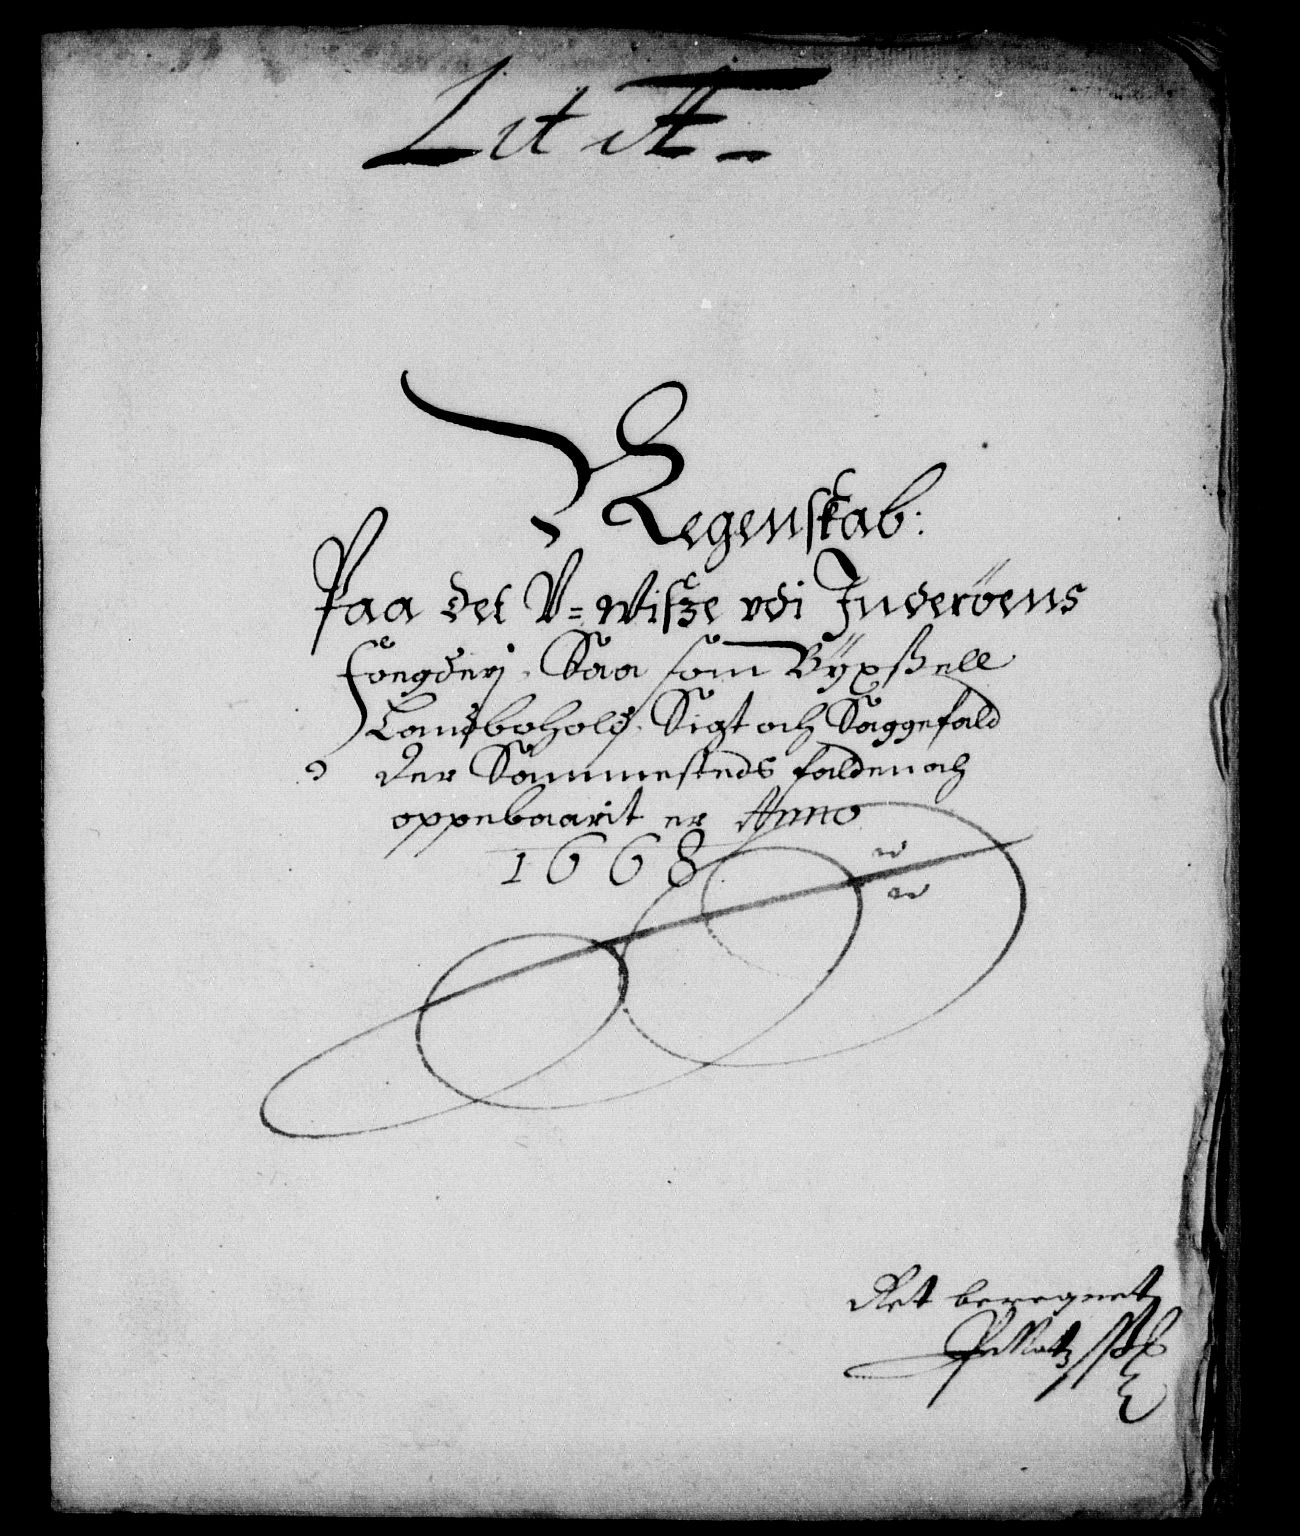 Lit A
Regenskab:
Paa det V=wisze vdi Inderöens
fougderj, Saa som Bÿxßell
Landboholdt, Sigt och Saggefald
der Sammesteds falden och
oppebaarit er Anno
1668
Ret beregnet